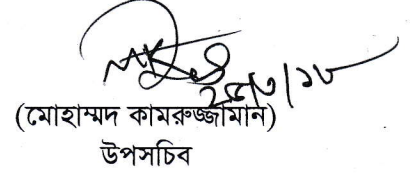 (মোহাম্মদ কামরুজ্জামান)
উপসচিব